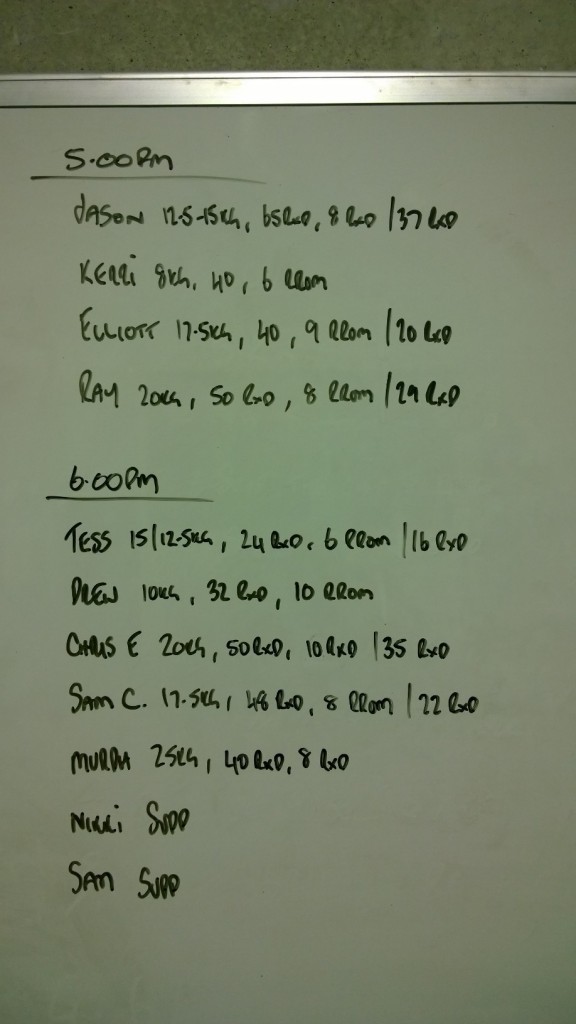 5.00PM
JASON 12.5-15KG, 65RxD, 8 RxD / 37 RxD
KERRI 8KG, 40, 6 RROM
ELLIOTT 17.5KG, 40, 9 RROM / 20 RxD
RAY 20KG, 50 RxD, 8 RROM / 29 RxD
6.00PM
TESS 15/12.5KG, 24 RxD, 6 RROM / 16 RxD
DREW 10KG, 32 RxD, 10 RROM
CHRIS E 20KG, 50RxD, 10RxD / 35 RxD
SAM C. 17.5KG, 48 RxD, 8 RROM / 22 RxD
MURPH 25KG, 40 RxD, 8 RxD
NIKKI SUPP
SAM SUPP